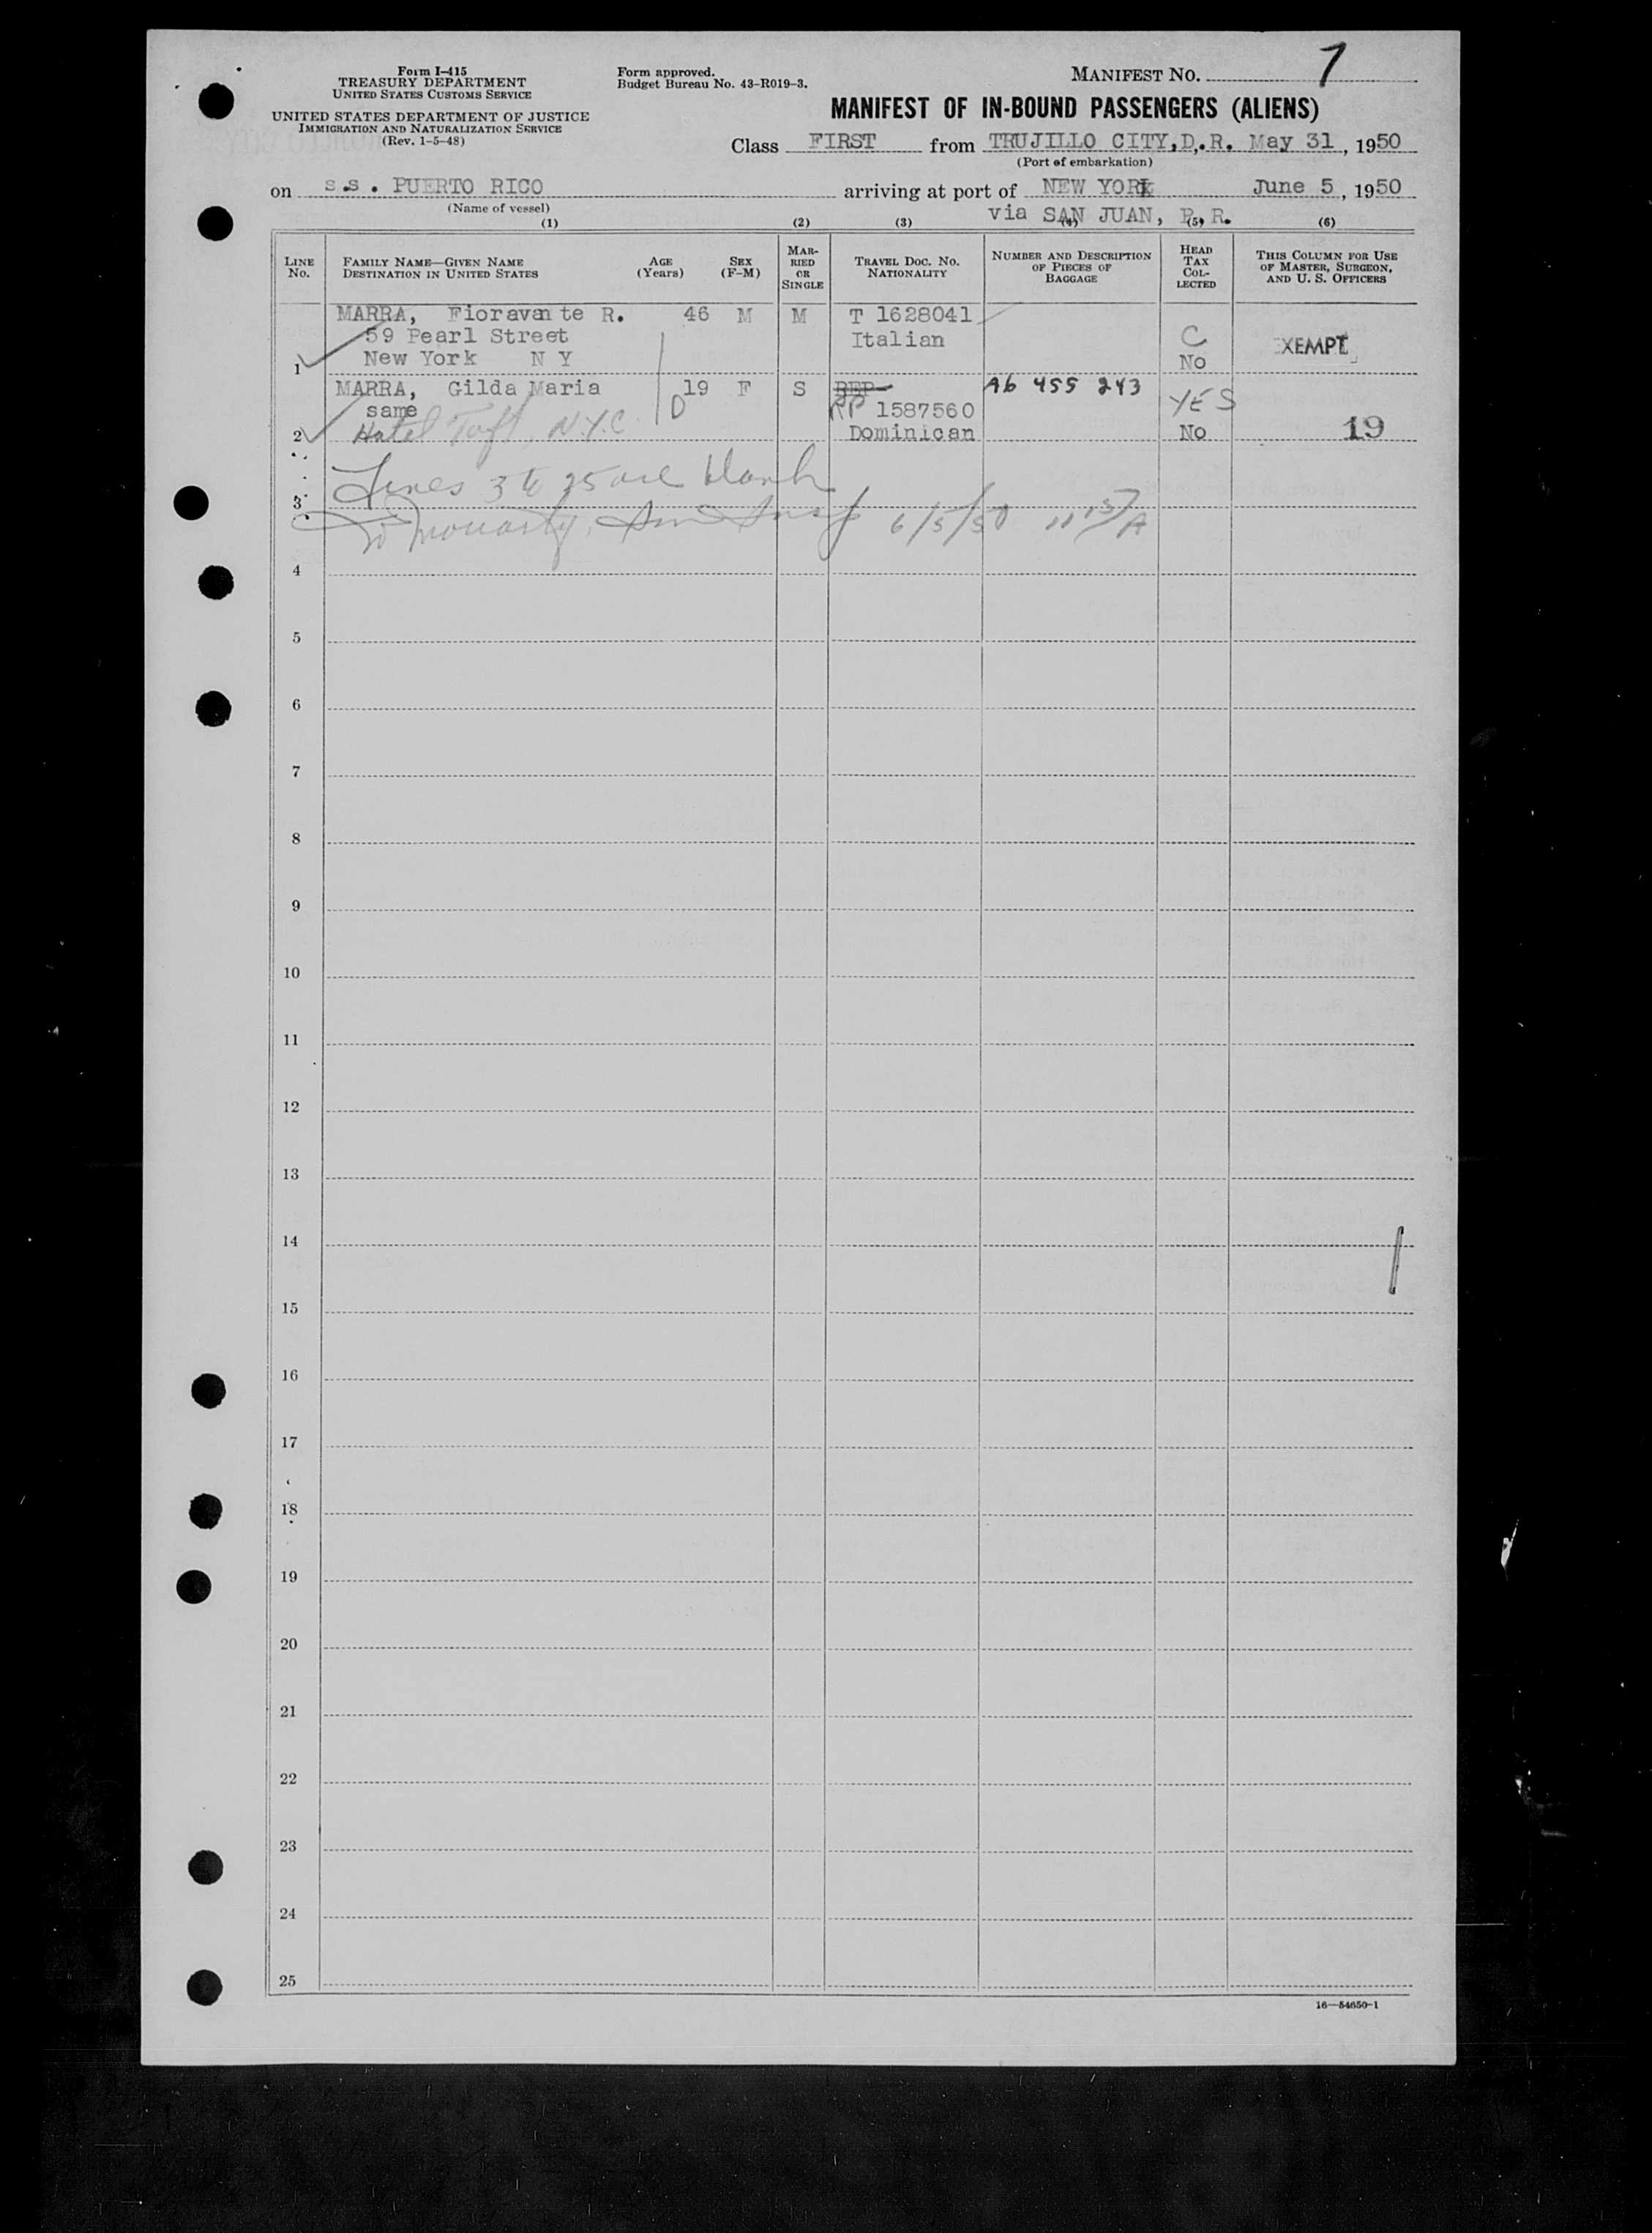 Form I-415
TREASURY DEPARTMENT
UNITED STATES CUSTOMS SERVICE
UNITED STATES DEPARTMENT OF JUSTICE
IMMIGRATION AND NATURALIZATION SERVICE
(Rev. 1-5-48)
Form approved.
Budget Bureau No. 43-R019-3.
MANIFEST NO. 7
MANIFEST OF IN-BOUND PASSENGERS (ALIENS)
Class FIRST from TRUJILLO CITY, D. R. May 31, 1950
(Port of embarkation)
on s.s. PUERTO RICO arriving at port of NEW YORK June 5, 1950
(Name of vessel)
via SAN JUAN, P. R.
(1) (2) (3) (4) (5) (6)
LINE No.
FAMILY NAME—GIVEN NAME
DESTINATION IN UNITED STATES
AGE (Years)
SEX (F-M)
MARRIED OR SINGLE
TRAVEL DOC. NO.
NATIONALITY
NUMBER AND DESCRIPTION OF PIECES OF BAGGAGE
HEAD TAX COLLECTED
THIS COLUMN FOR USE OF MASTER, SURGEON, AND U. S. OFFICERS
MARRA, Fioravante R. 46 M M T 1628041
59 Pearl Street Italian C EXEMPT
1 New York N Y No
MARRA, Gilda Maria 19 F S REP A6 455 243
same D RP 1587560 YES
2 Hotel Taft, N.Y.C Dominican No 19
Lines 3 to 25 are blank
3
Moriarty, Imm Insp 6/5/50 11 15/A
4
5
6
7
8
9
10
11
12
13
14
15
16
17
18
19
20
21
22
23
24
25
16—54650-1